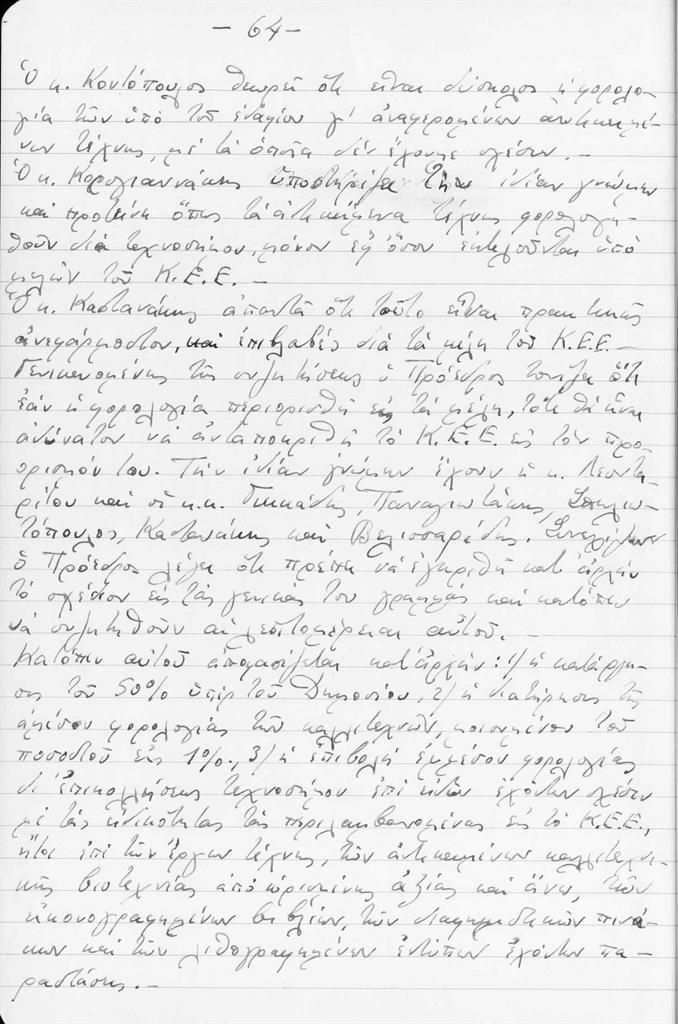 - 64 -
Ὁ κ. Κοντόπουλος θεωρεῖ ὅτι εἶναι δύσκολος ἡ φορολο-
γία τῶν ὑπὸ τοῦ ἐδαφίου γ' ἀναφερομένων ἀντικειμέ-
νων τέχνης, μὲ τὰ ὁποῖα δὲν ἔχουμε σχέσιν. -
Ὁ κ. Καρογιαννάκης ὑποστηρίζει τὴν ἰδίαν γνώμην
καὶ προτείνει ὅπως τὰ ἀντικείμενα τέχνης φορολογη-
θοῦν διὰ τεχνοσήμου, μόνον ἐφ' ὅσον ἐκτελοῦνται ὑπὸ
μελῶν τοῦ Κ.Ε.Ε. -
Ὁ κ. Καστανάκης ἀπαντᾶ ὅτι τοῦτο εἶναι πρακτικῶς
ἀνεφάρμοστον, καὶ ἐπιβλαβὲς διὰ τὰ μέλη τοῦ Κ.Ε.Ε. -
Γενικευομένης τῆς συζητήσεως ὁ Πρόεδρος τονίζει ὅτι
ἐὰν ἡ φορολογία περιορισθῆ εἰς τὰ μέλη, τότε θὰ εἶναι
ἀδύνατον νὰ ἀνταποκριθῆ τὸ Κ.Ε.Ε. εἰς τὸν προ-
ορισμόν του. Τὴν ἰδίαν γνώμην ἔχουν ἡ κ. Λεοντα-
ρίτου καὶ οἱ κ.κ. Γιαννάδης, Παναγιωτάκης, Σπηλιω-
τόπουλος, Καστανάκης καὶ Βελισσαρίδης. Συνεχίζων
ὁ Πρόεδρος λέγει ὅτι πρέπει νὰ ἐγκριθῆ κατ' ἀρχὴν
τὸ σχέδιον εἰς τὰς γενικάς του γραμμὰς καὶ κατόπιν
νὰ συζητηθοῦν αἱ λεπτομέρειαι αὐτοῦ. -
Κατόπιν αὐτοῦ ἀποφασίζεται κατ' ἀρχήν: 1/ ἡ κατάργη-
σις τοῦ 50% ὑπὲρ τοῦ Δημοσίου, 2/ ἡ διατήρησις τῆς
ἀμέσου φορολογίας τῶν καλλιτεχνῶν, μειουμένου τοῦ
ποσοστοῦ εἰς 1%, 3/ ἡ ἐπιβολὴ ἐμμέσου φορολογίας
δι' ἐπικολλήσεως τεχνοσήμου ἐπὶ εἰδῶν ἐχόντων σχέσιν
μὲ τὰς εἰδικότητας τὰς περιλαμβανομένας εἰς τὸ Κ.Ε.Ε.,
ἤτοι ἐπὶ τῶν ἔργων τέχνης, τῶν ἀντικειμένων καλλιτεχνι-
κῆς βιοτεχνίας ἀπὸ ὡρισμένης ἀξίας καὶ ἄνω, τῶν
εἰκονογραφημένων βιβλίων, τῶν διαφημιστικῶν πινά-
κων καὶ τῶν λιθογραφημένων ἐντύπων ἐχόντων πα-
ραστάσεις. -